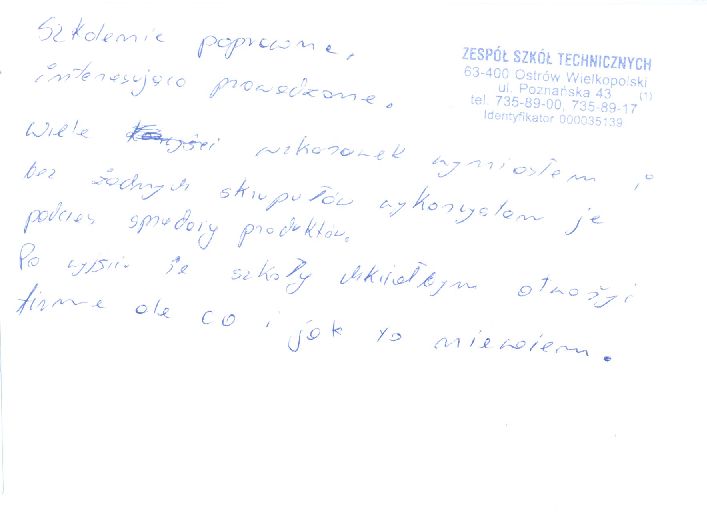 Szkolenie poprawne,
interesująco prowadzone.
ZESPÓŁ SZKÓŁ TECHNICZNYCH
63-400 Ostrów Wielkopolski
ul. Poznańska 43 (1)
tel. 735-89-00, 735-89-17
Identyfikator 000035139
Wiele wskazówek wyniosłem i
bez żadnych skrupułów wykorzystam je
podczas sprzedaży produktów.
Po wyjściu ze szkoły chciałbym otwożyć
firme ale co i jak to niewiem.